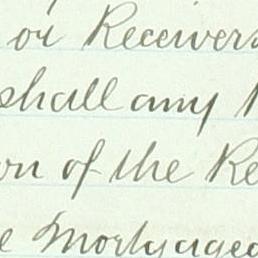 or Receivers
shall any
on of the Re
e Mortgaged